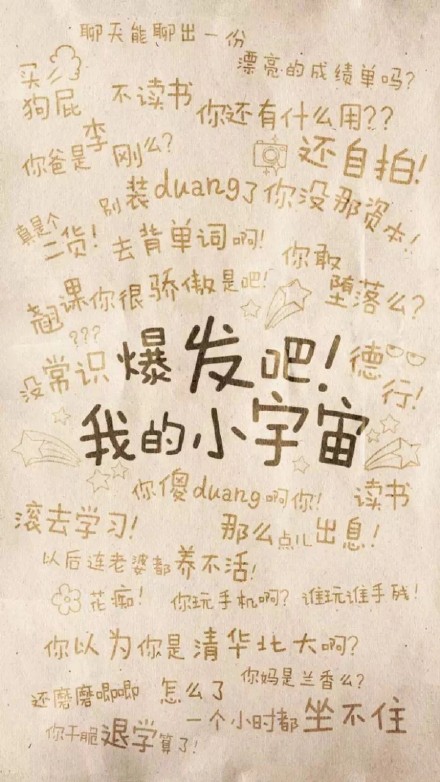 聊天能聊出一份
漂亮的成绩单吗?
买
狗屁
不读书
你还有什么用??
你爸是李刚么?
还自拍!
别装duang了你没那资本!
真是个
二货!
去背单词啊!
你敢
堕落么?
翘课你很骄傲是吧!
???
没常识
爆发吧!
德
行!
我的小宇宙
你傻duang啊你!
读书
滚去学习!
那么点儿出息!
以后连老婆都养不活!
花痴!
你玩手机啊?谁玩谁手残!
你以为你是清华北大啊?
你妈是兰香么?
还磨磨唧唧
怎么了
一个小时都坐不住
你干脆退学算了!